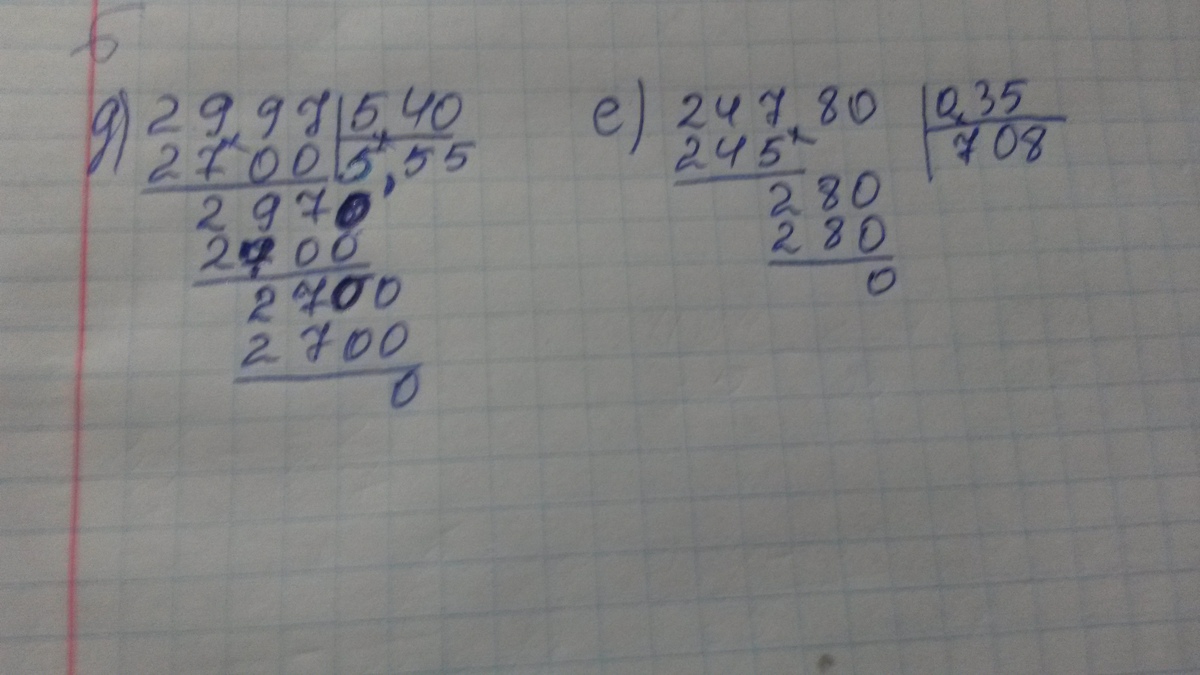 б
д) 29,97 | 5,40
2700 | 5,55
2970
2700
2700
2700
0
е) 247,80 | 0,35
245 | 708
280
280
0